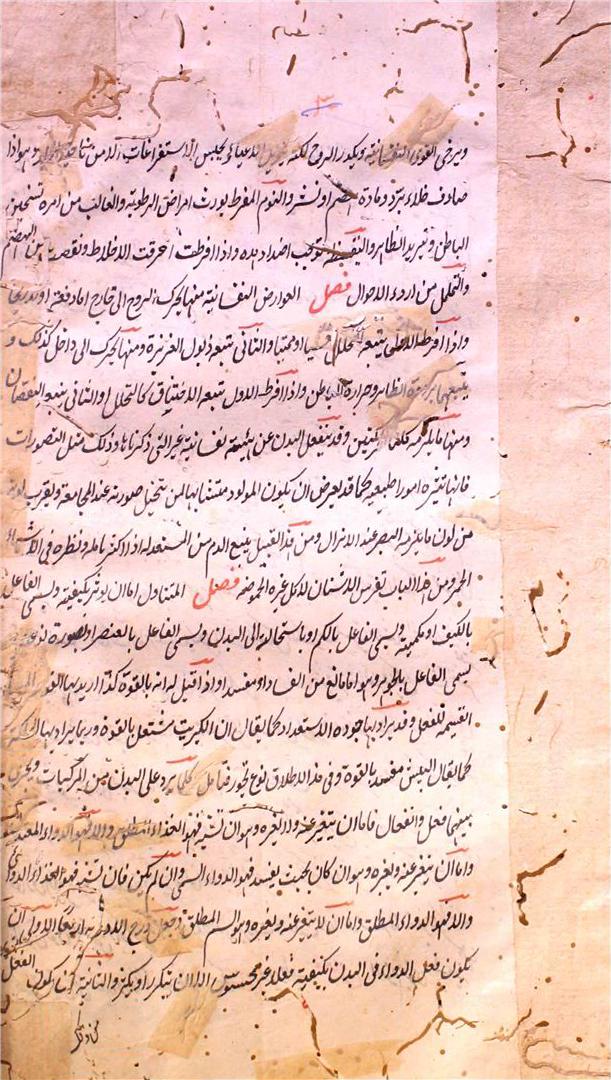 ويرخى القوى النفسانية ويكدر الروح لكنه يزيل الاعياء ويحبس الاستفراغات الا من
صادف خلاء برد مادة الهضم او نشر والنوم المفرط يورث امراض الرطوبة والغالب من امره تسخين
الباطن وتبريد الظاهر واليقظة توجب اضداد هذه واذا افرطت احرقت الاخلاط ونقصت من الهضم
والتململ من اردء الاحوال فصل العوارض النفسانية منها يحرك الروح الى خارج اما دفعة او تدريجا
واذا افرط الاول يتبعه التحلل والثانى يتبعه ذبول الغريزة ومنها يحرك الى داخل كذلك و
يتبعهما برودة الظاهر وحرارة الباطن واذا افرط الاول تبعه الاختناق كالتحلل او الثانى يتبعه النقصان
ومنها ما يلزمه كلتا الحركتين وقد ينفعل البدن عن هيئة نفسانية غير التى ذكرناها وذلك مثل التصورات
فانها تثير امورا طبيعية كما قد يعرض ان يكون المولود متشابها لمن يتخيل صورته عند المجامعة ويقرب لونه
من لون ما يلزمه البصر عند الانزال ومن هذا القبيل ينبع الدم من المستعد له اذا اكثر تامله ونظره فى الاشياء
الحمر ومن هذا الباب تضرس الاسنان لاكل غيره الحموضة فصل المتناول اما ان يوثر بكيفيته ويسمى الفاعل
بالكيف او بكميته ويسمى الفاعل بالكم او باستحالة الى البدن ويسمى الفاعل بالعنصر او بصورة نوعية
يسمى الفاعل بالجوهر وهو اما مانع من الفساد او مفسد واذا قيل له انه بالقوة كذا اريد بها القوة
القسيمة للفعل وقد يراد بها جودة الاستعداد كما يقال ان الكبريت مشتعل بالقوة وربما يراد بها
كما يقال البيش مفسد بالقوة وفى هذا الاطلاق نوع تجوز فتامل كلما يرد على البدن من المركبات ويجرى
بينهما فعل وانفعال فاما ان يتغير عنه ولا يغيره وهو ان تشبه فهو الغذاء المطلق والا فهو الدواء المعتدل
واما ان يتغير عنه ويغيره وهو ان كان بحيث يفسد فهو الدواء السمى وان لم يكن فان تشبه فهو الغذاء الدوائى
والا فهو الدواء المطلق واما ان لا يتغير عنه ويغيره وهو السم المطلق وجعل درج الادوية اربعا الاولى ان
يكون فعل الدواء فى البدن بكيفيته فعلا غير محسوس الا ان يتكرر او يكثر والثانية ان يكون الفعل